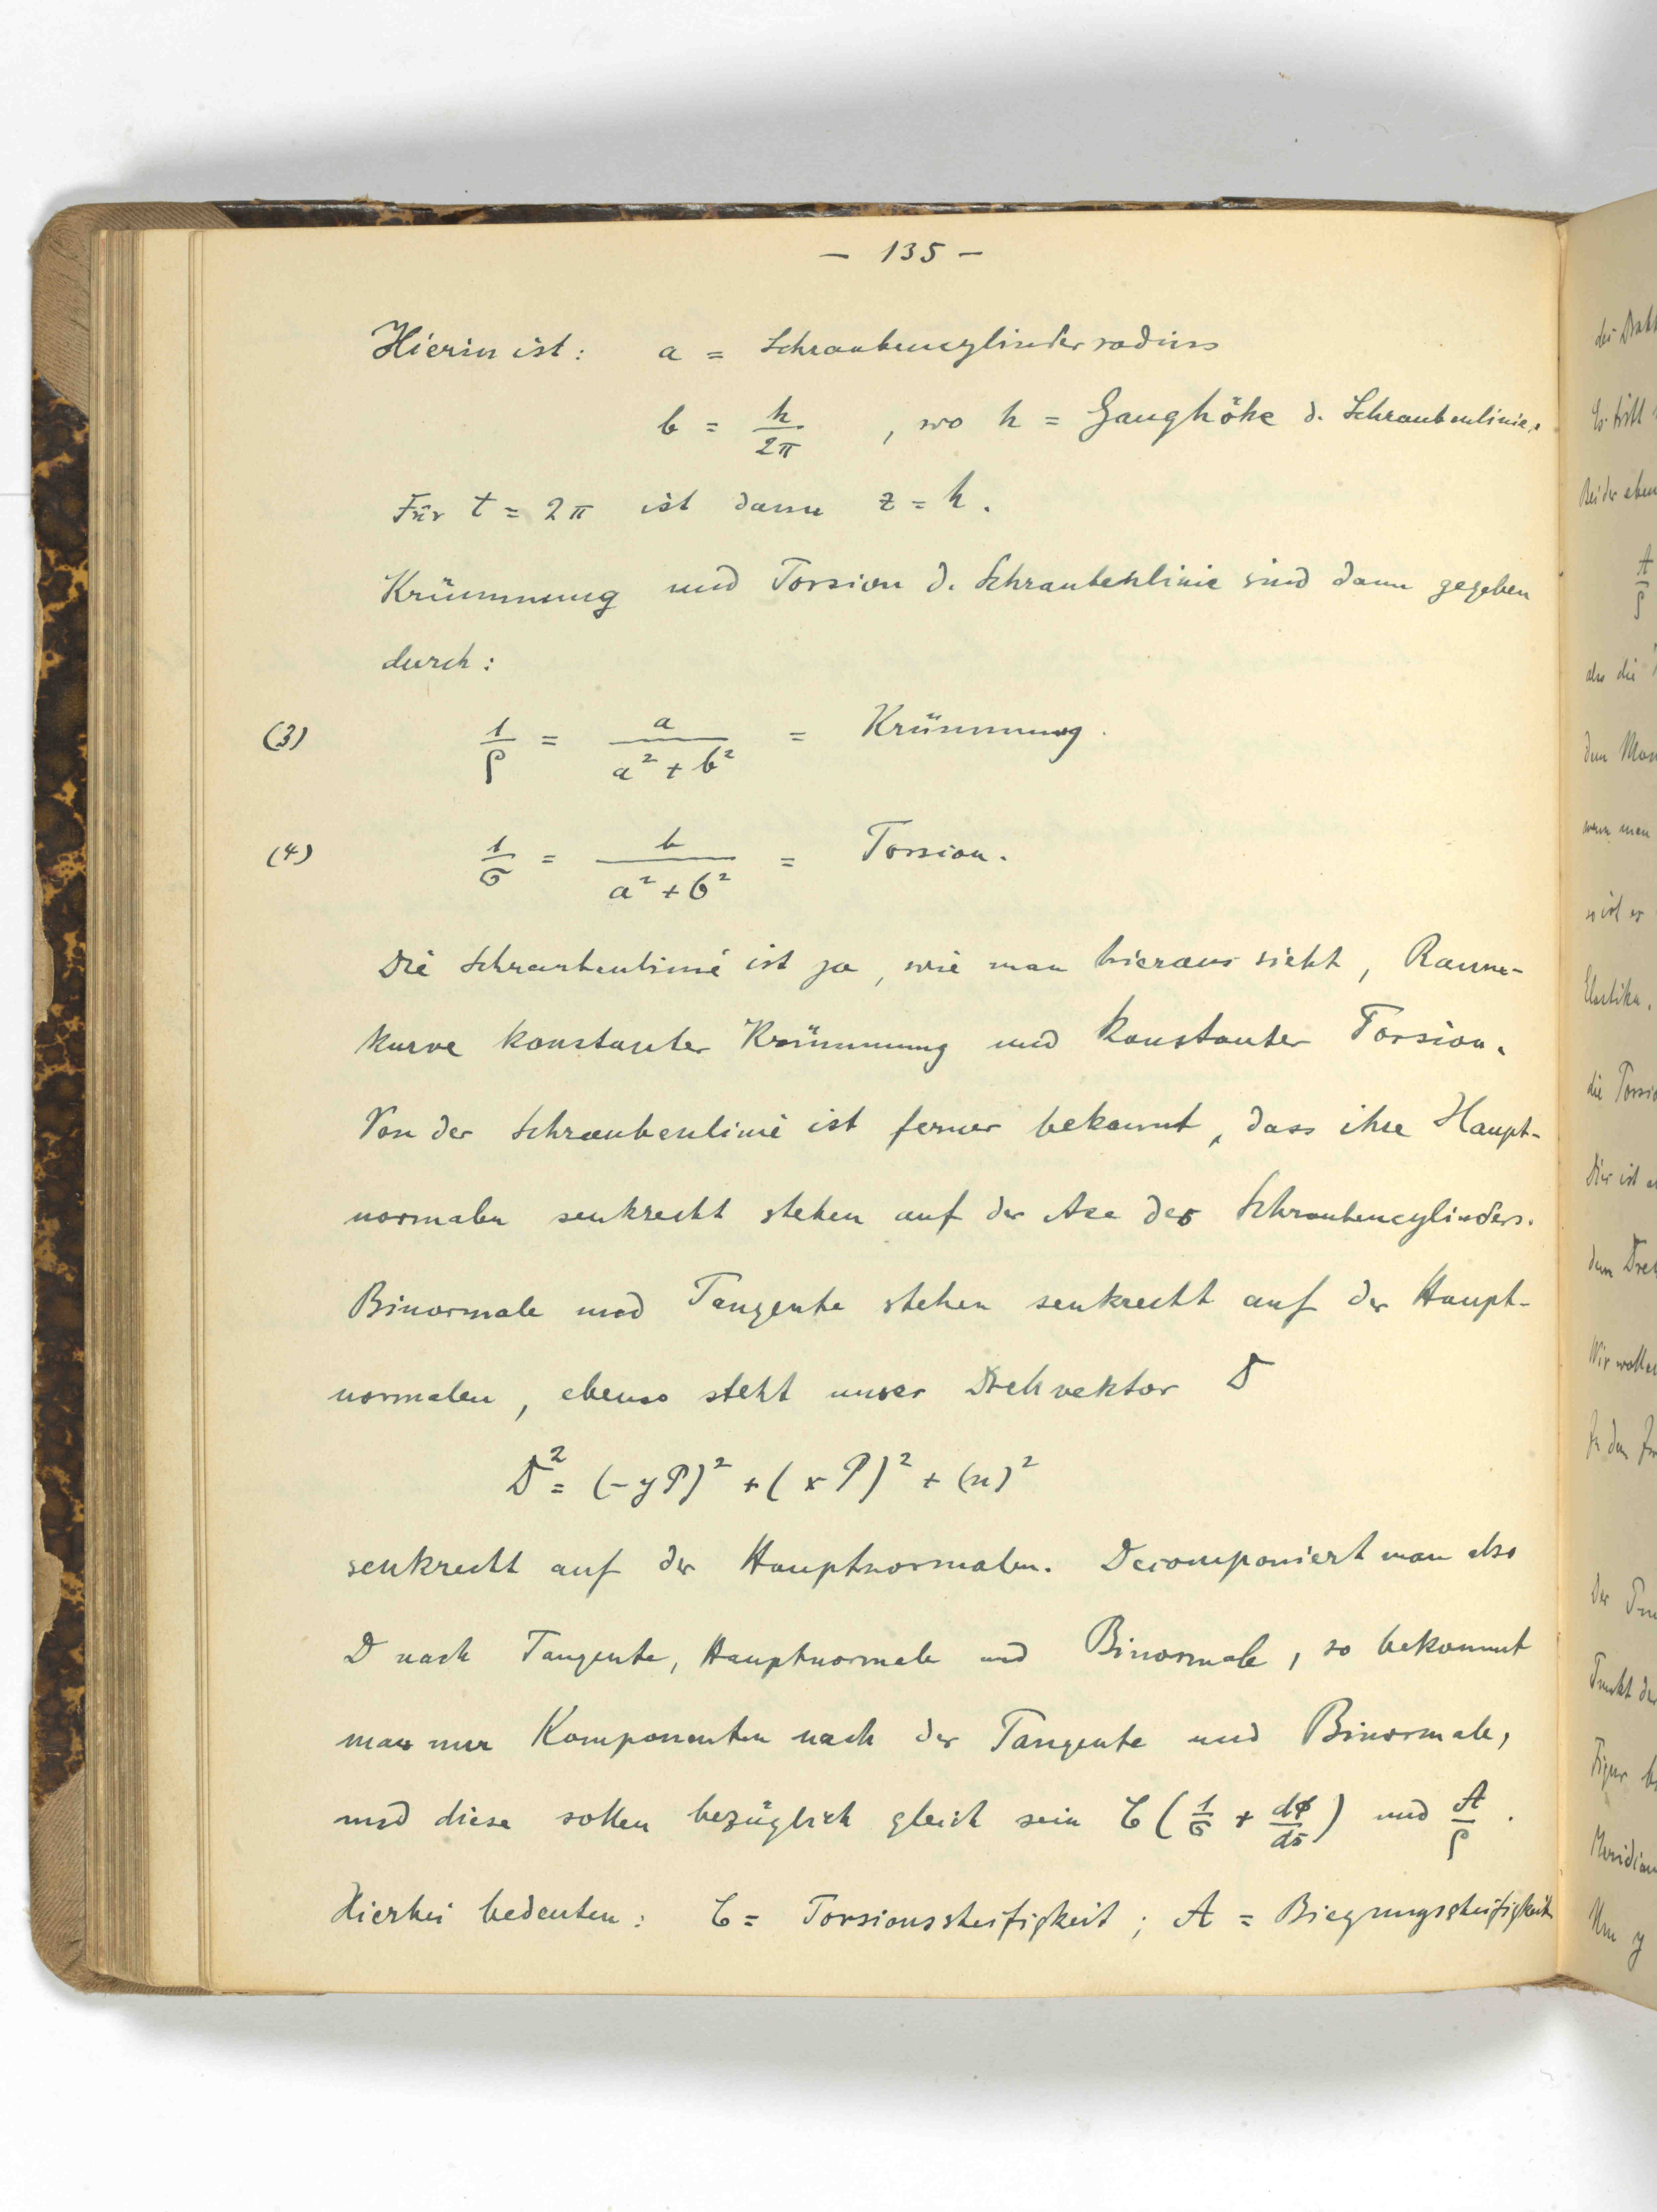 – 135 –
Hierin ist: a = Schraubencylinderradius
b = h/2π , wo h = Ganghöhe d. Schraubenlinie.
Für t = 2π ist dann z = h.
Krümmung und Torsion d. Schraubenlinie sind dann gegeben
durch:
(3) 1/ρ = a/(a² + b²) = Krümmung.
(4) 1/σ = b/(a² + b²) = Torsion.
Die Schraubenlinie ist ja, wie man hieraus sieht, Raum-
kurve konstanter Krümmung und konstanter Torsion.
Von der Schraubenlinie ist ferner bekannt, dass ihre Haupt-
normalen senkrecht stehen auf der Axe des Schraubencylinders.
Binormale und Tangente stehen senkrecht auf der Haupt-
normalen, ebenso steht unser Drehvektor D
D² = (-yP)² + (xP)² + (n)²
senkrecht auf der Hauptnormalen. Decomponiert man also
D nach Tangente, Hauptnormale und Binormale, so bekommt
man nur Komponenten nach der Tangente und Binormale,
und diese sollen bezüglich gleich sein C(1/σ + dφ/ds) und A/ρ.
Hierbei bedeuten: C = Torsionssteifigkeit; A = Biegungssteifigkeit